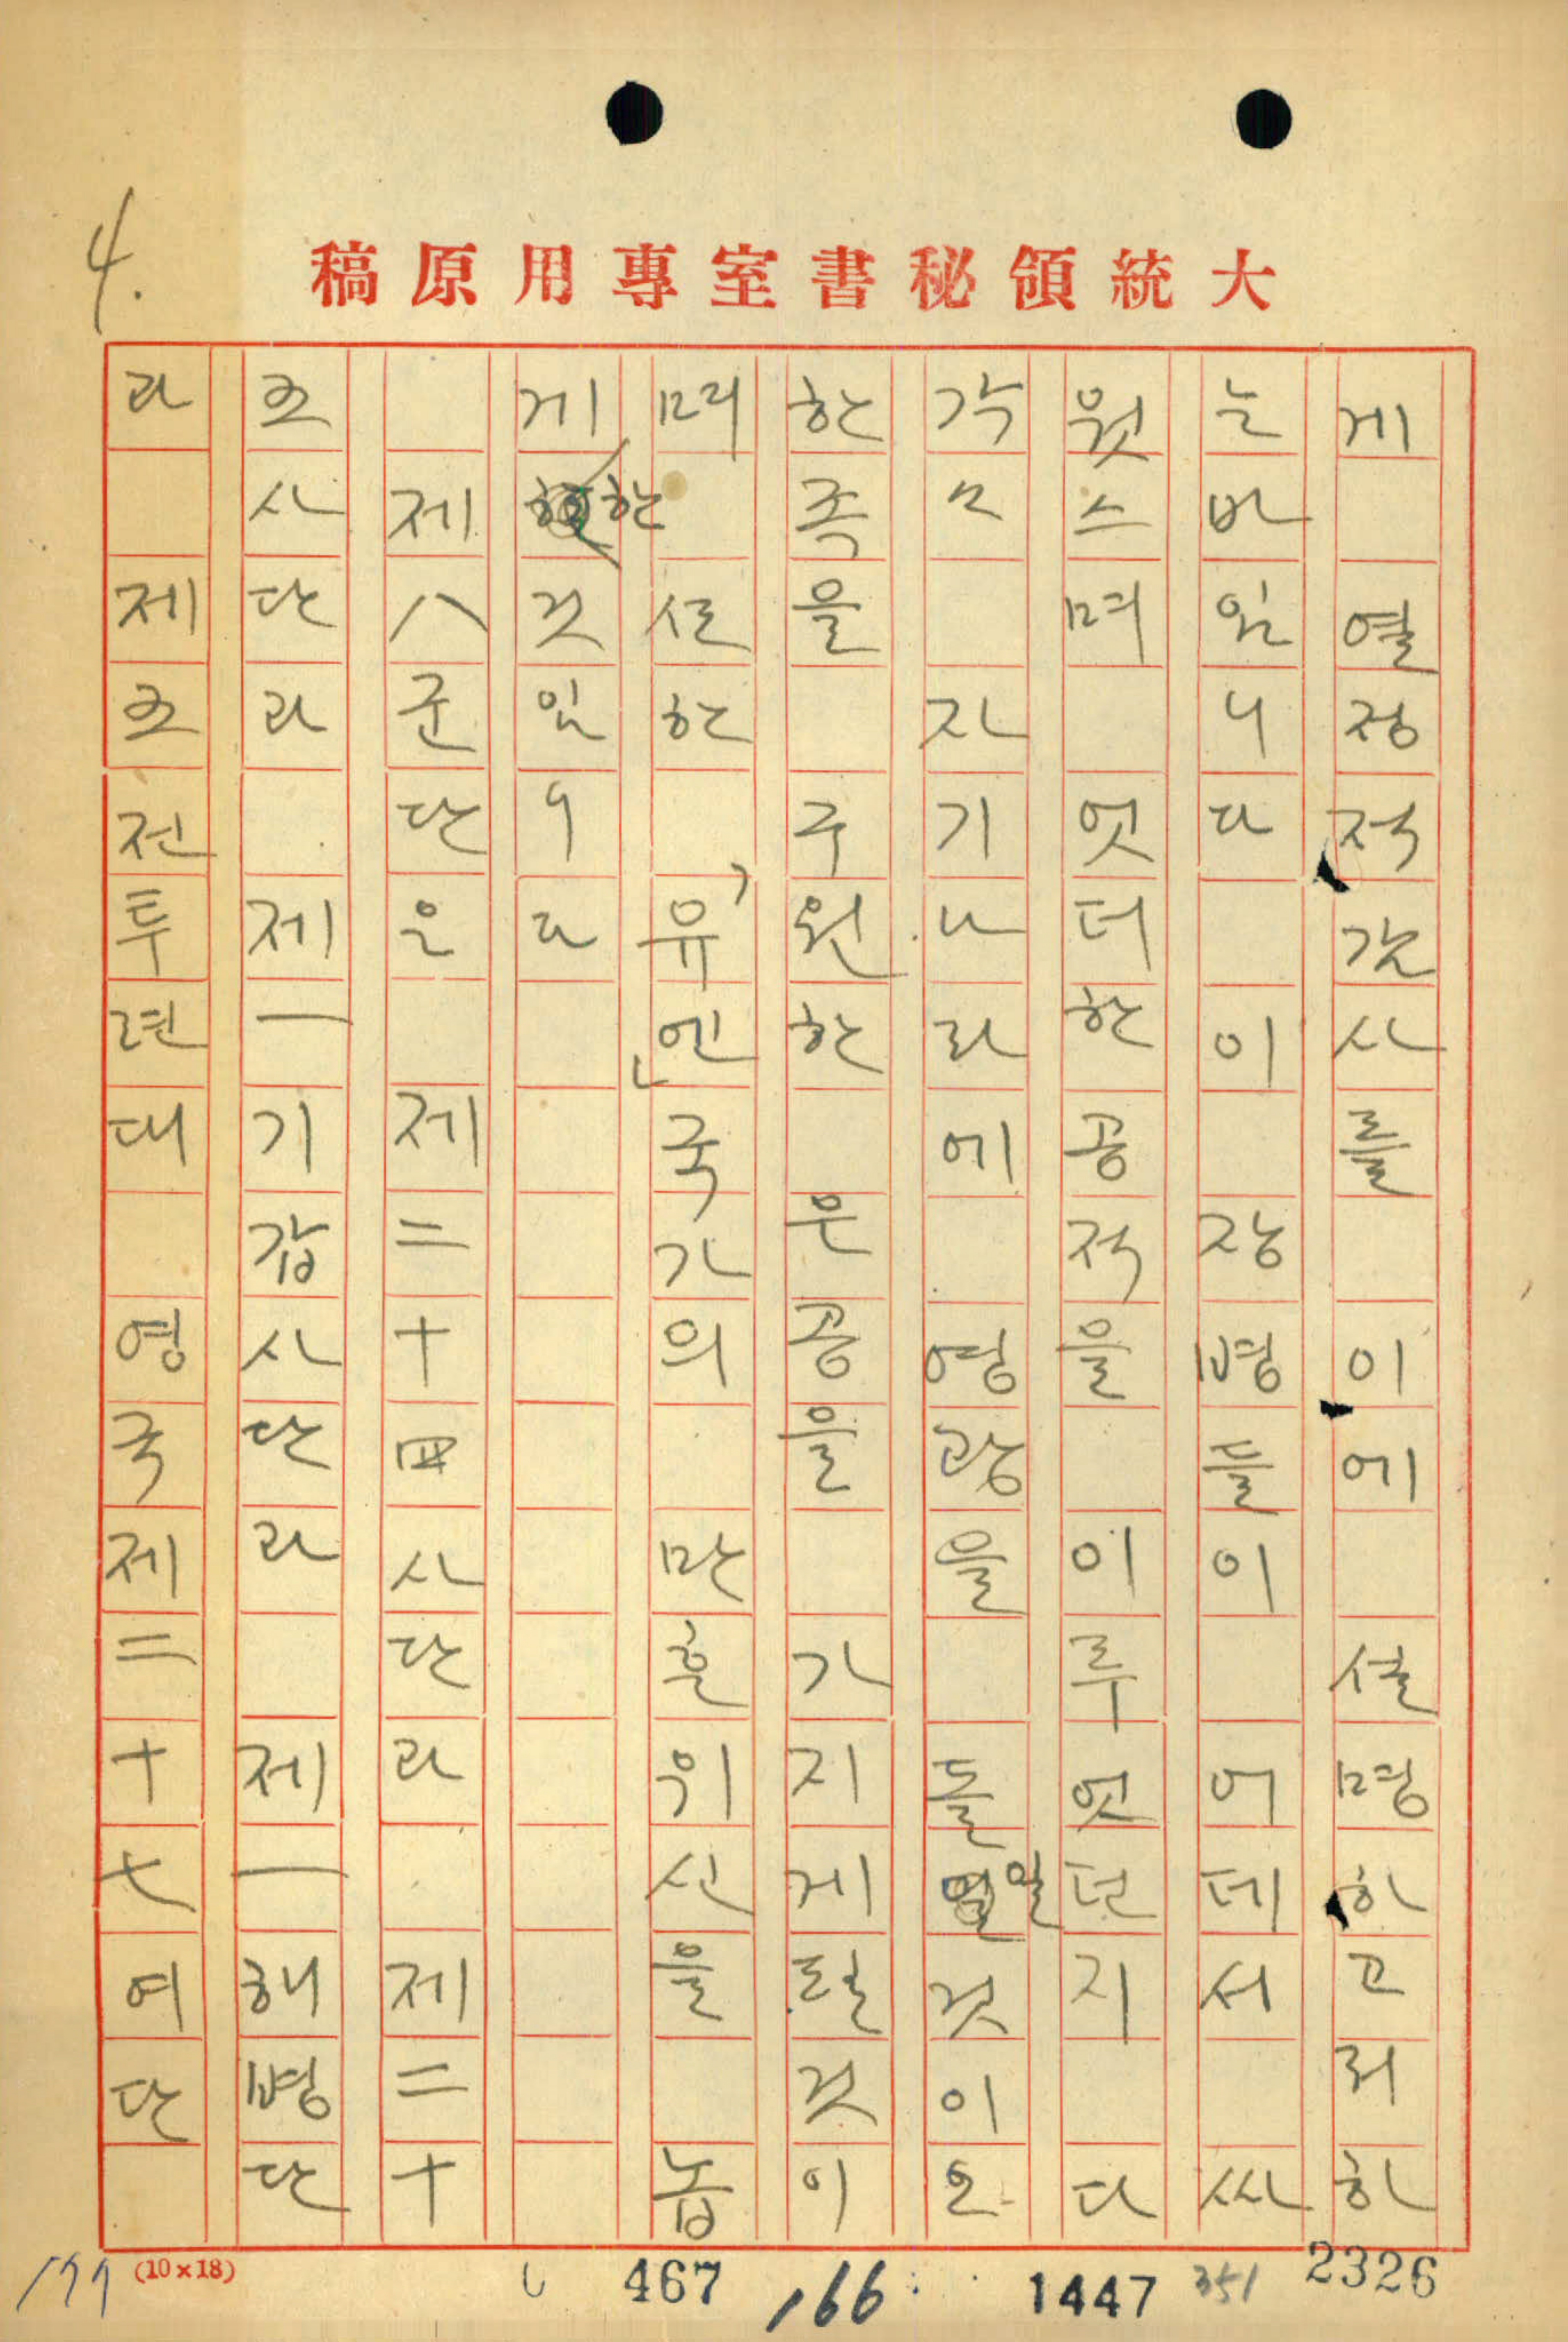 4.
大統領秘書室專用原稿
게 열정적감사를 이에 설명하고려하
는바임니다 이 장병들이 어데서 싸
웟스며 엇더한공적을 이루엇던지 다
각々 자기나라에 영광을 돌일것이오
한족을 구원한 은공을 가지게될것이
며 또한 유엔국가의 만흔위신을 놉
게한것임니다
제八군단은 제二十四사단과 제二十
五사단과 제一기갑사단과 제一해병단
과 제五전투련대 영국제二十七여단
(10×18)
467
166
1447
351
2326